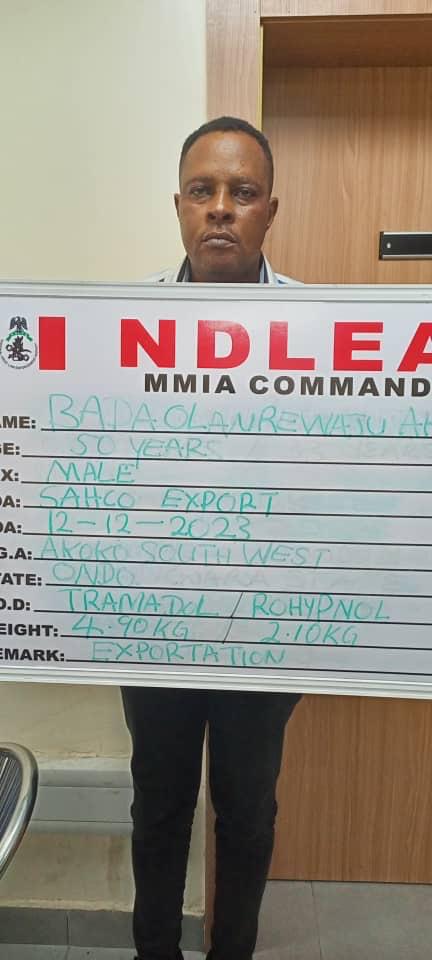 NDLEA
MMIA COMMAND
AME: BADA OLANREWAJU
GE: 50 YEARS
X: MALE
OA: SAHCO EXPORT
OA: 12-12-2023
G.A: AKOKO SOUTH WEST
TATE: ONDO
O.D: TRAMADOL / ROHYPNOL
EIGHT: 4.90KG / 2.10KG
EMARK: EXPORTATION